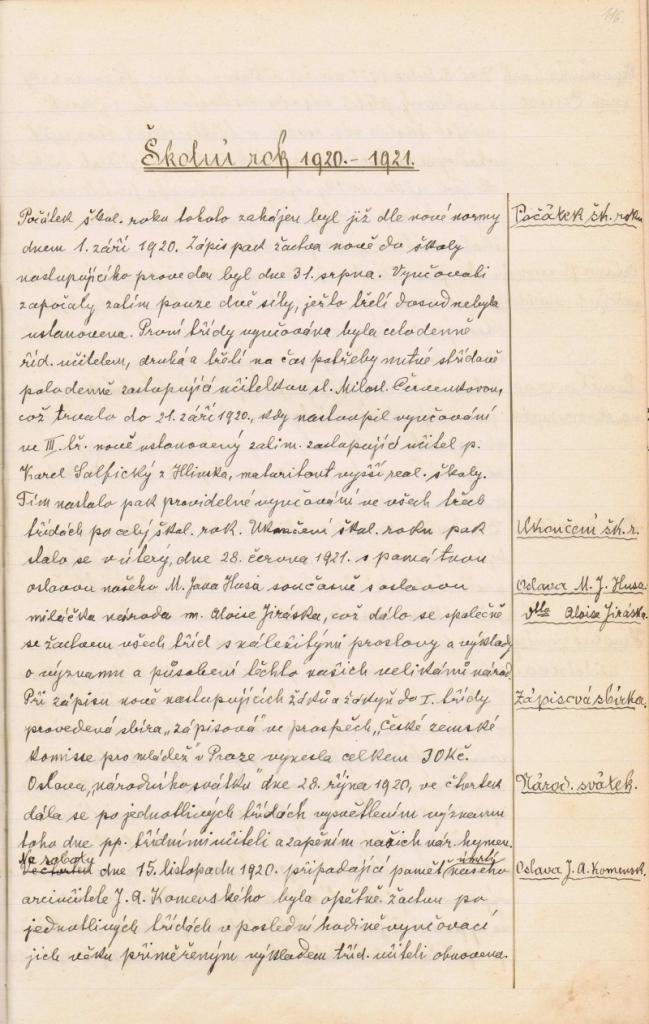 116.
Školní rok 1920.-1921.
Počátek škol. roku tohoto zahájen byl již dle nové normy
Počátek šk. roku
dnem 1. září 1920. Zápis pak žactva nově do školy
nastupujícího proveden byl dne 31. srpna. Vyučovati
započaly zatím pouze dvě síly, ježto třetí dosud nebyla
ustanovena. První třídy vyučována byla celodenně
říd. učitelem, druhá a třetí na čas potřeby nutné střídavě
polodenně zastupující učitelkou sl. Milosl. Červenkovou,
což trvalo do 21. září 1920., kdy nastoupil vyučování
ve III. tř. nově ustanovený zatím. zastupující učitel p.
Karel Salfický z Hlinska, maturitant vyšší real. školy.
Tím nastalo pak pravidelné vyučování ve všech třech
třídách po celý škol. rok. Ukončení škol. roku pak
Ukončení šk. r.
stalo se v úterý, dne 28. června 1921. s památnou
oslavou našeho M. Jana Husa současně s oslavou
Oslava M. J. Husa
miláčka národa m. Aloise Jiráska, což dálo se společně
Aloise Jiráska.
se žactvem všech tříd s náležitými proslovy a výklady
o významu a působení těchto našich velikánů národ.
Při zápisu nově nastupujících žáků a žákyň do I. třídy
Zápisová sbírka.
provedená sbírka „zápisová" ve prospěch „České zemské
komisse pro mládež" v Praze vynesla celkem 30 Kč.
Oslava „národního svátku" dne 28. října 1920, ve čtvrtek
Národ. svátek.
dála se po jednotlivých třídách vysvětlením významu
toho dne pp. třídními učiteli a zapěním našich nár. hymen.
Na
dne 15. listopadu 1920. připadající paměť úmrtí našeho
Oslava J. A. Komensk.
arciučitele J. A. Komenského byla opětně žactvu po
jednotlivých třídách v poslední hodině vyučovací
jich věku přiměřeným výkladem tříd. učiteli obnovena.